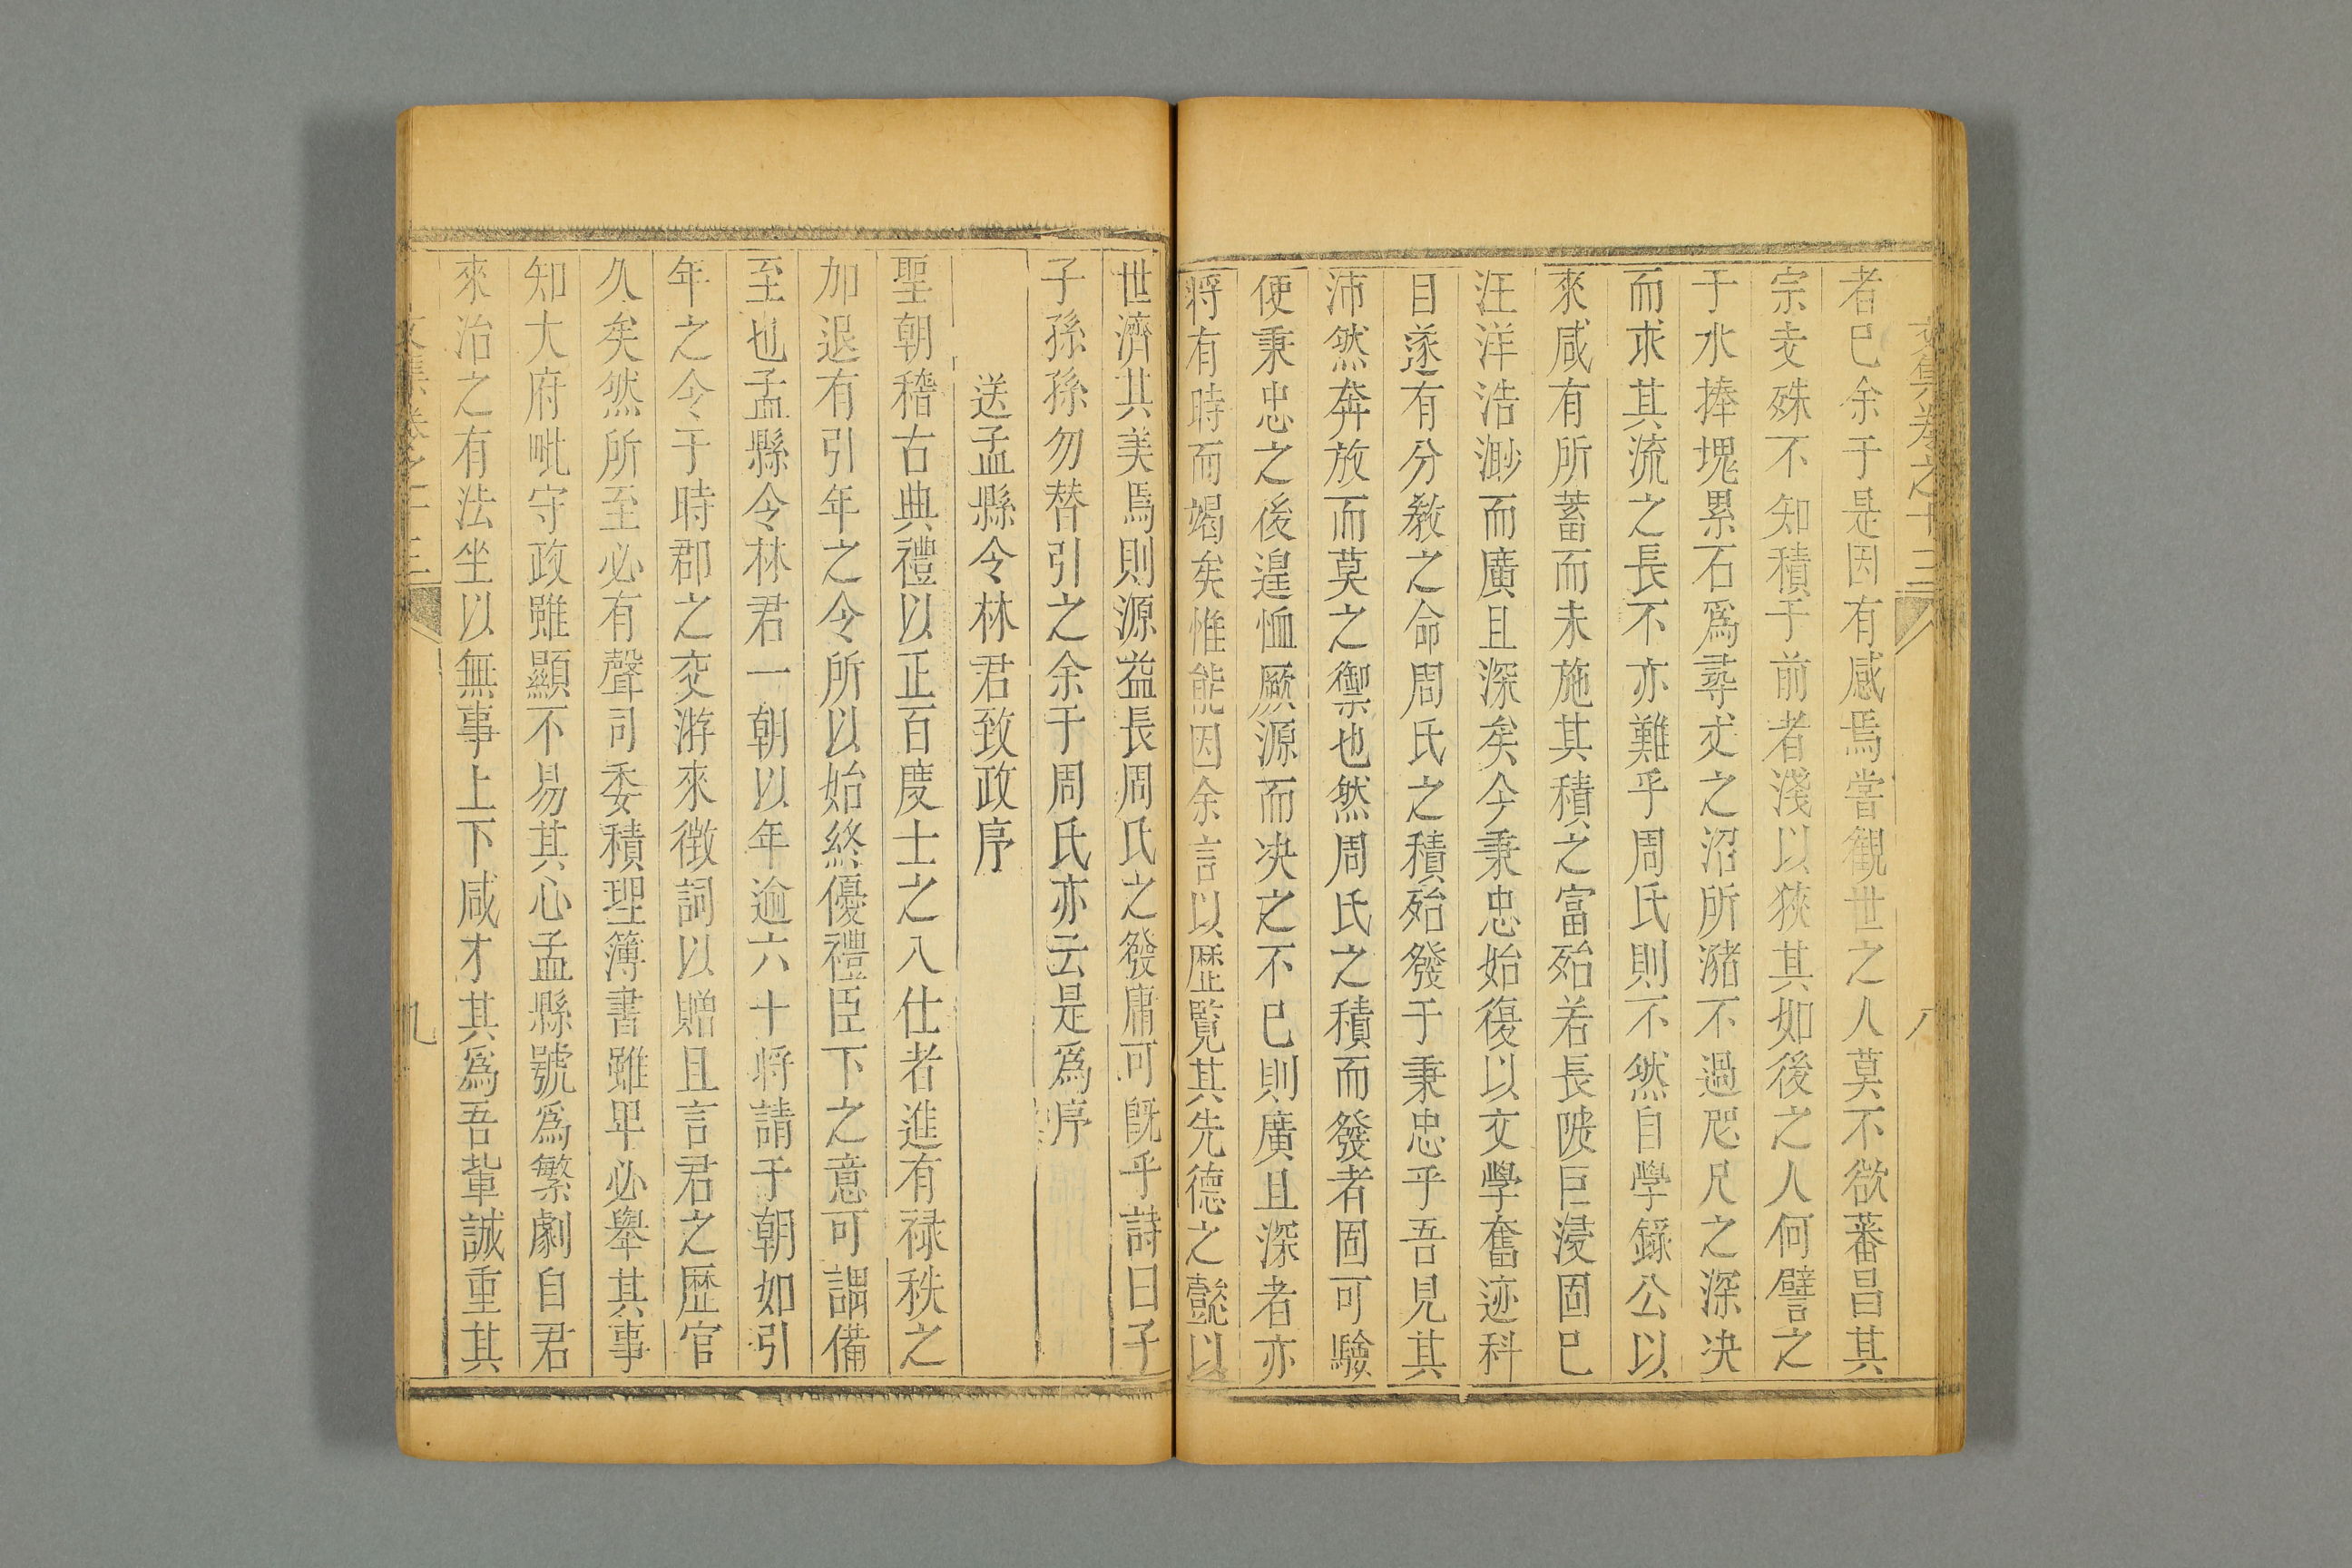 文集卷之十三 八
者已余于是因有感焉嘗觀世之人莫不欲蕃昌其
宗支殊不知積于前者淺以狹其如後之人何譬之
于水捧塊累石爲尋丈之沼所瀦不過咫尺之深决
而求其流之長不亦難乎周氏則不然自學錄公以
來咸有所蓄而未施其積之富殆若長陂巨浸固已
汪洋浩渺而廣且深矣今秉忠始復以文學奮迹科
目遂有分敎之命周氏之積殆發于秉忠乎吾見其
沛然奔放而莫之禦也然周氏之積而發者固可驗
使秉忠之後遑恤厥源而决之不已則廣且深者亦
將有時而竭矣惟能因余言以歷覽其先德之懿以
世濟其美焉則源益長周氏之發庸可旣乎詩曰子
子孫孫勿替引之余于周氏亦云是爲序
送孟縣令林君致政序
聖朝稽古典禮以正百度士之入仕者進有禄秩之
加退有引年之令所以始終優禮臣下之意可謂備
至也孟縣令林君一朝以年逾六十將請于朝如引
年之令于時郡之交游來徵詞以贈且言君之歷官
久矣然所至必有聲司委積理簿書雖卑必舉其事
知大府毗守政雖顯不易其心孟縣號爲繁劇自君
來治之有法坐以無事上下咸才其爲吾輩誠重其
文集卷之十三 九